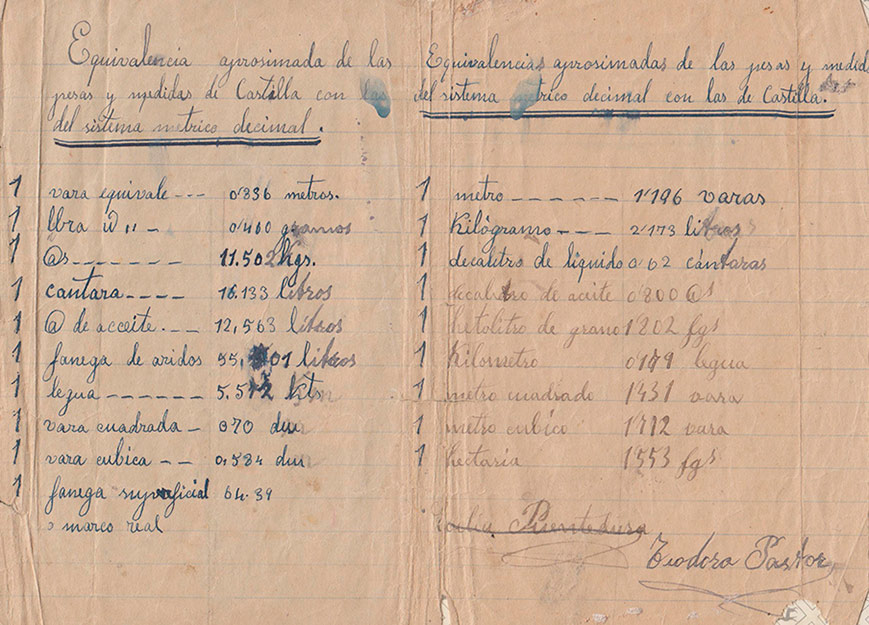 Equivalencia aprosimada de las
pesas y medidas de Castilla con las
del sistema metrico decimal.
1 vara equivale --- 0'836 metros.
1 lbra id ,, - 0'460 gramos
1 @s------- 11.502 kgs.
1 cantara---- 16.133 litros
1 @ de acceite.-- 12,563 litros
1 fanega de aridos 55, 01 litros
1 legua ------ 5.572 kts
1 vara cuadrada - 070 dm
1 vara cubica -- 0.584 dm
1 fanega superficial 64.39
o marco real
Equivalencias aprosimadas de las pesas y medid
del sistema metrico decimal con las de Castilla.
1 metro ------- 1'196 varas
1 Kilógramo --- 2'173 litros
1 decalitro de liquido 0'62 cántaras
1 decalitro de aceite 0'800 @s
1 hetolitro de grano 1'802 fgs
1 Kilometro 0'179 legua
1 metro cuadrado 1'431 vara
1 metro cubíco 1'712 vara
1 hectaria 1'553 fgs
Puentedura
Teodora Pastor